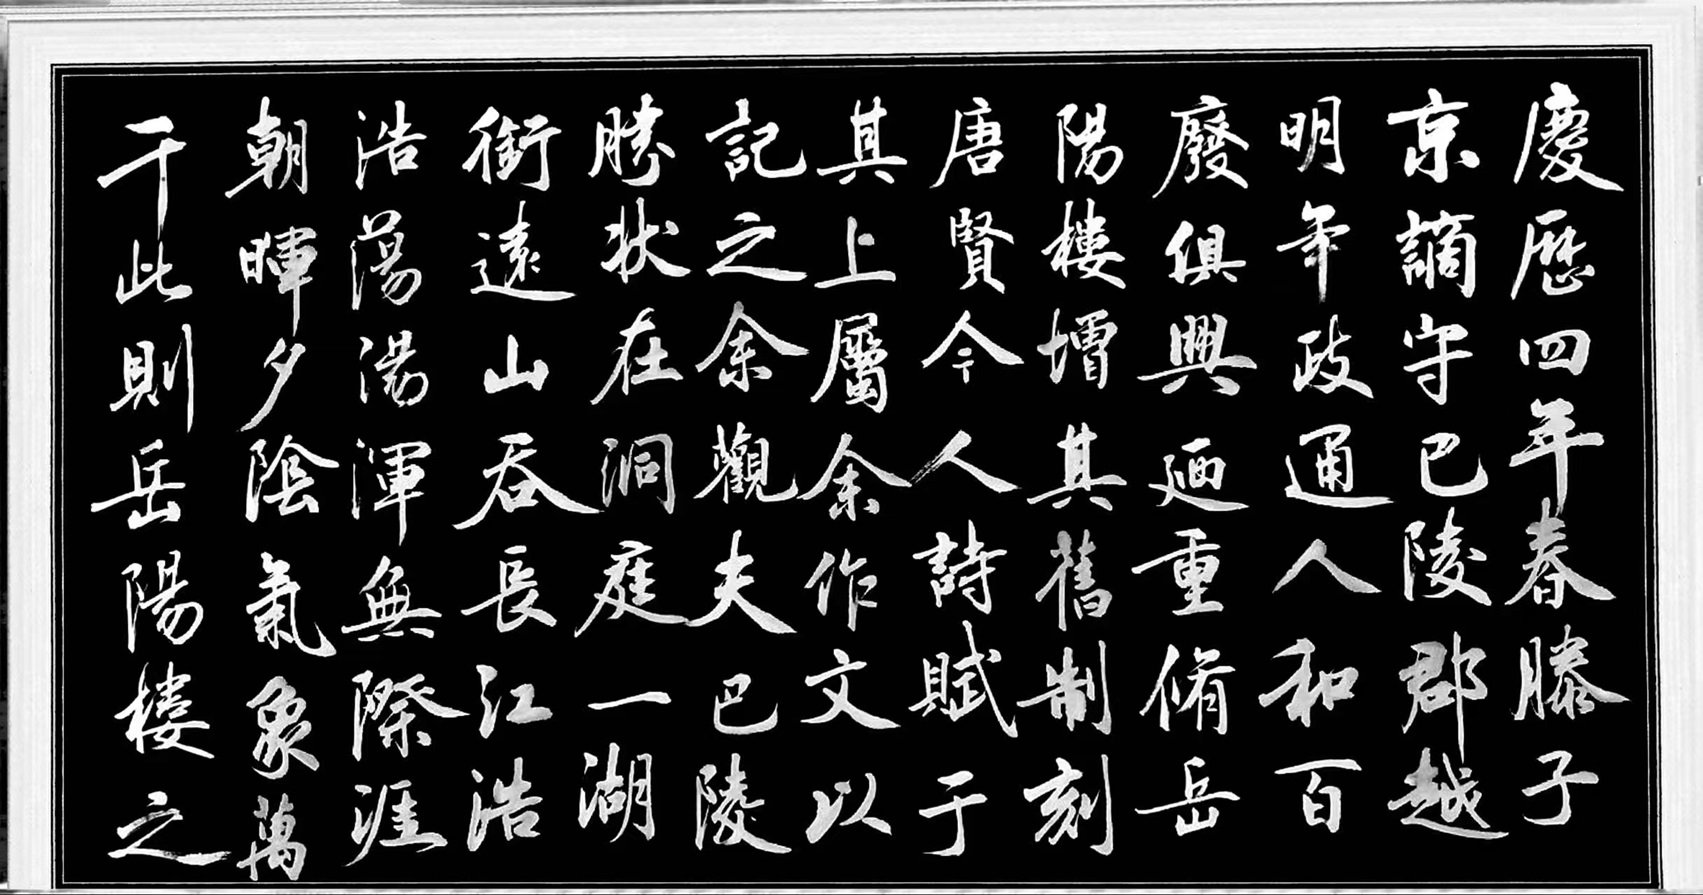 慶歷四年春滕子
京謫守巴陵郡越
明年政通人和百
廢俱興廼重脩岳
陽樓增其舊制刻
唐賢今人詩賦于
其上屬余作文以
記之余觀夫巴陵
勝狀在洞庭一湖
銜遠山吞長江浩
浩蕩湯渾無際涯
朝暉夕陰氣象萬
千此則岳陽樓之